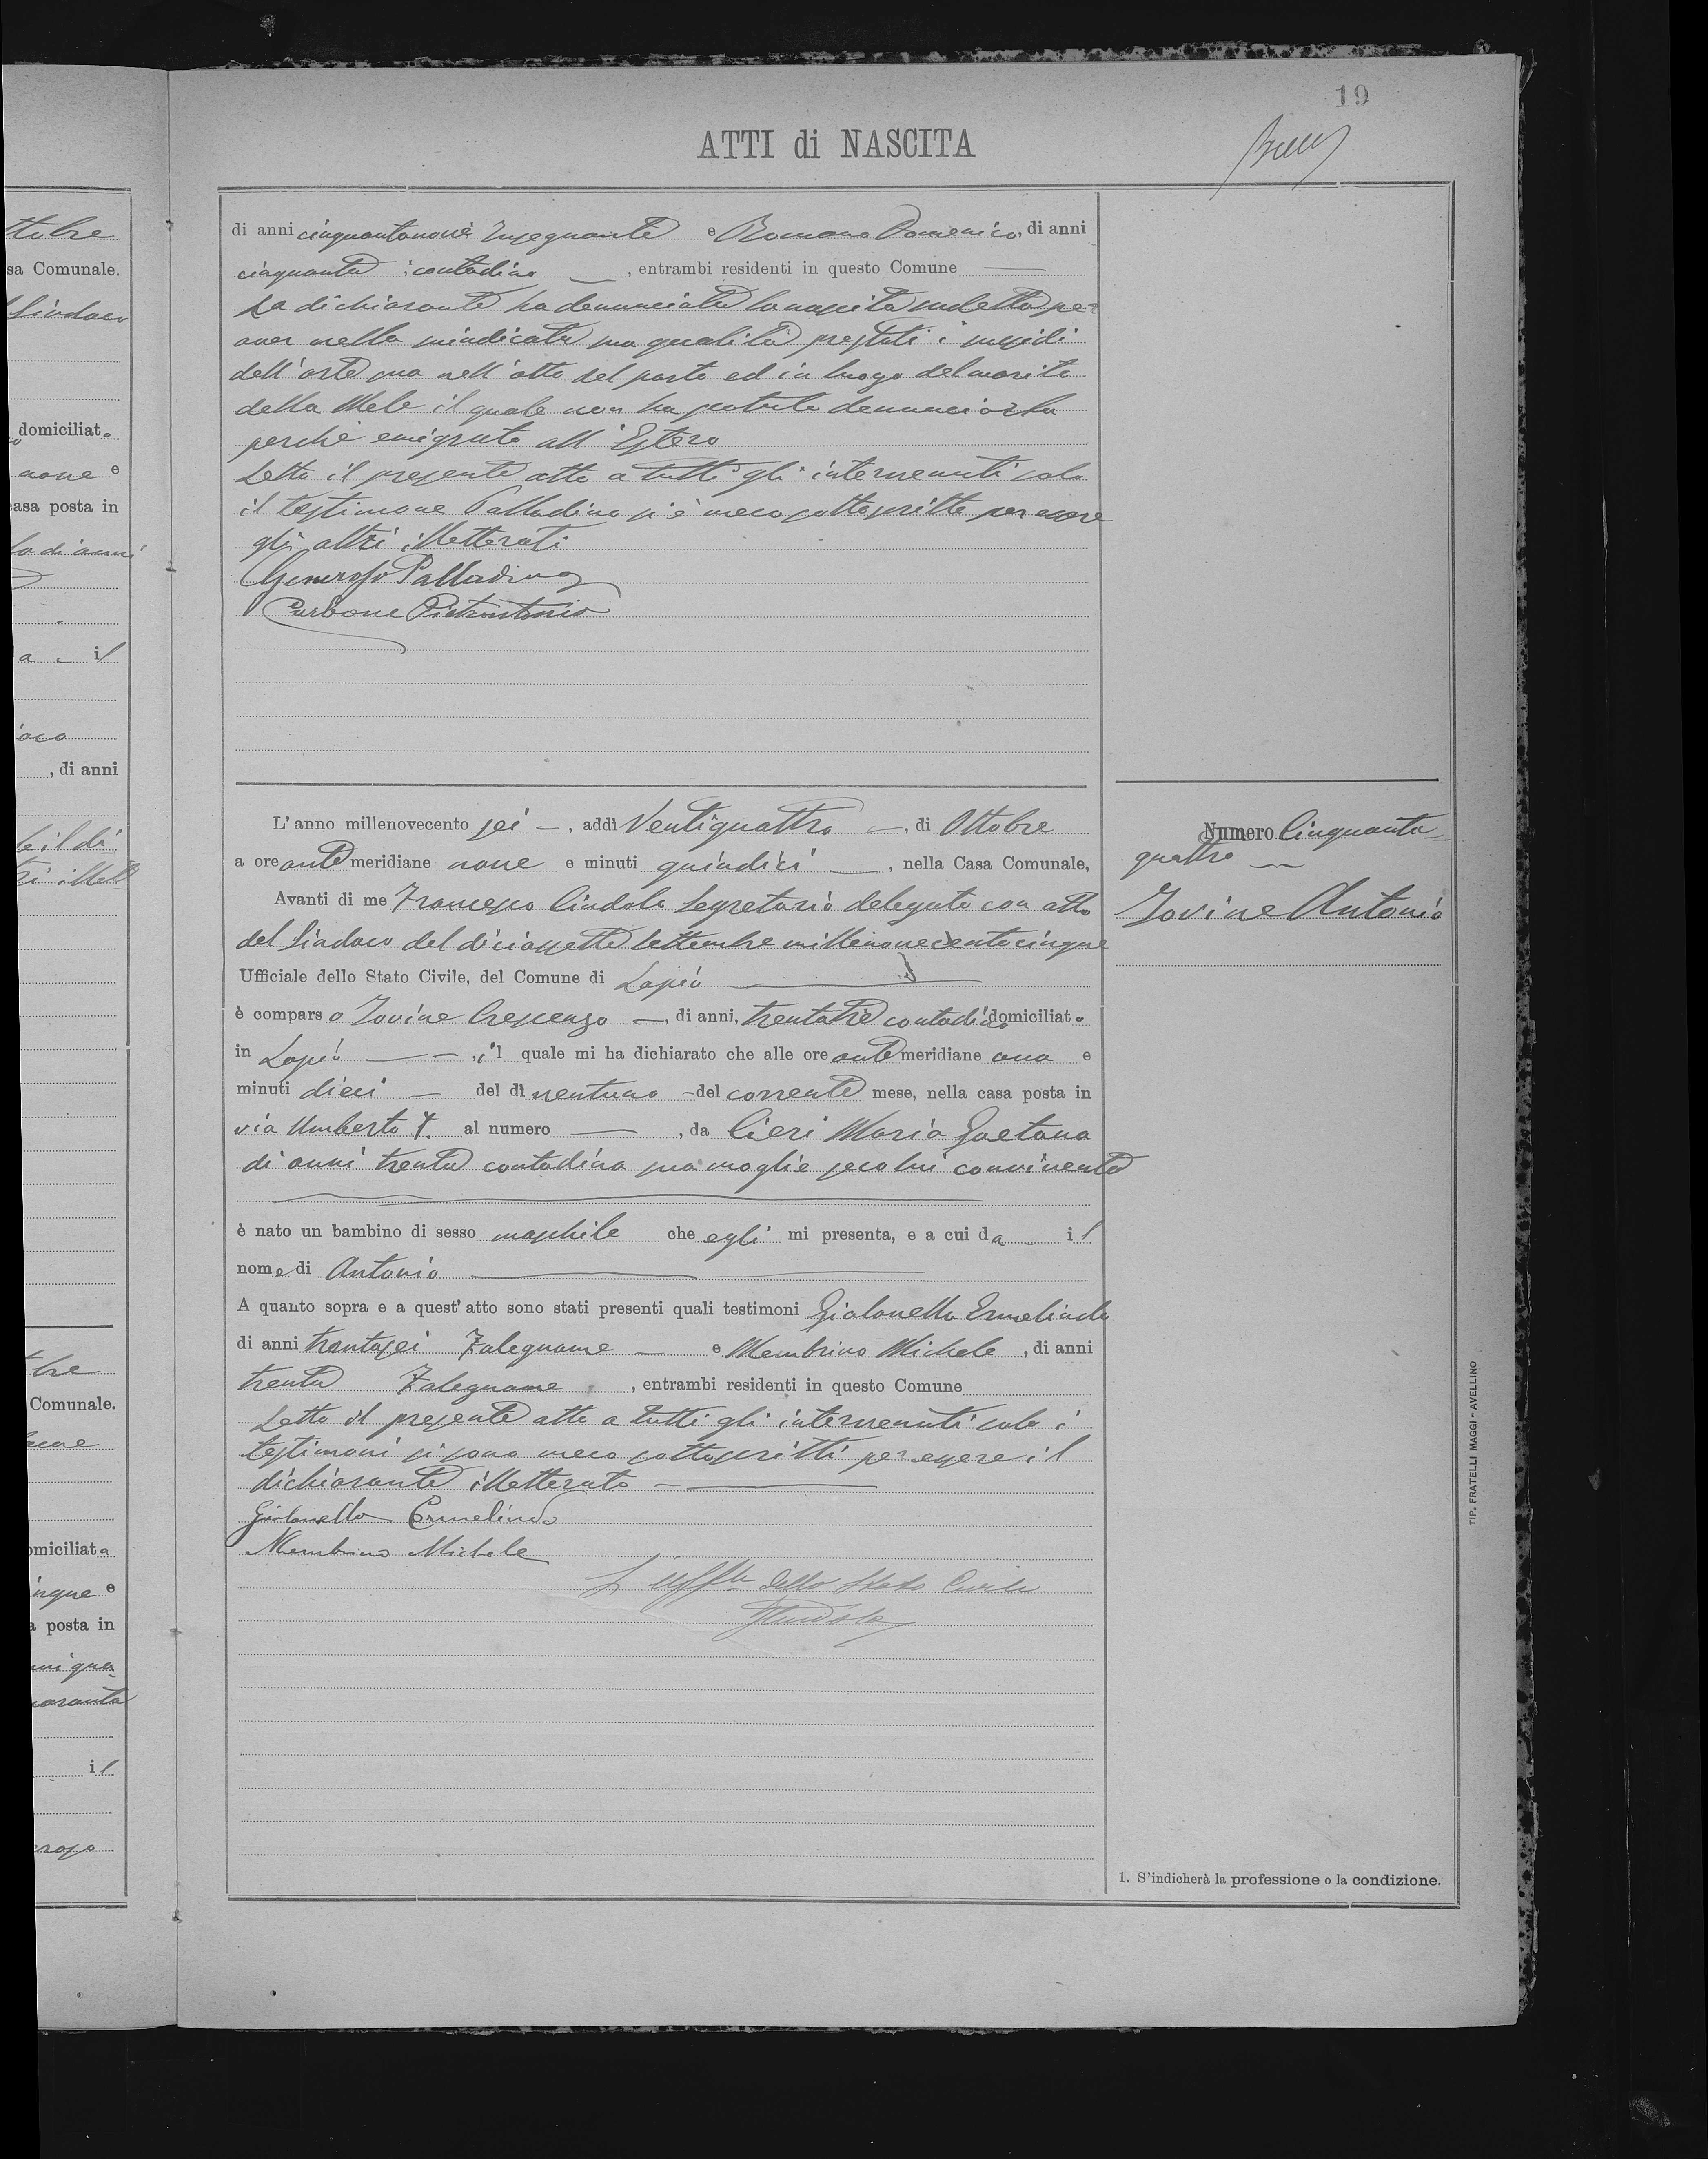 19
ATTI di NASCITA
di anni cinquantanove Insegnante e Romano Domenico, di anni
cinquanta contadino, entrambi residenti in questo Comune
La dichiarante ha denunciata la nascita sudetta per
aver nella suindicata sua qualità prestati i sussidi
dell'arte sua nell'atto del parto ed in luogo del marito
della Mele il quale non ha potuto denunciarla
perchè emigrato all'Estero
Letto il presente atto a tutti gli intervenuti solo
il testimone Palladino si è meco sottoscritto per essere
gli altri illetterati
Generoso Palladino
Carbone Pietrantonio
L'anno millenovecento sei —, addì Ventiquattro —, di Ottobre
a ore antemeridiane nove e minuti quindici —, nella Casa Comunale,
Avanti di me Francesco Cindolo Segretario delegato con atto
del Sindaco del diciassette Settembre millenovecentocinque
Ufficiale dello Stato Civile, del Comune di Lapio
è comparso Iovine Crescenzo —, di anni, trentatre contadino domiciliato
in Lapio — —, il quale mi ha dichiarato che alle ore antemeridiane una e
minuti dieci — del dì ventuno - del corrente mese, nella casa posta in
via Umberto I. al numero —, da Cieri Maria Gaetana
di anni trenta contadina sua moglie seco lui convivente
è nato un bambino di sesso maschile che egli mi presenta, e a cui da il
nome di Antonio
A quanto sopra e a quest'atto sono stati presenti quali testimoni Gialanella Ermelindo
di anni trentasei Falegname — e Membrino Michele, di anni
trenta Falegname, entrambi residenti in questo Comune
Letto il presente atto a tutti gli intervenuti solo i
testimoni si sono meco sottoscritti per essere il
dichiarante illetterato
Gialanella Ermelindo
Membrino Michele
L'Uffle dello Stato Civile
FCindolo
Numero Cinquanta
quattro
Iovine Antonio
1. S'indicherà la professione o la condizione.
TIP. FRATELLI MAGGI - AVELLINO
ttobre
sa Comunale.
Sindaco
domiciliato
nove e
casa posta in
la di anni
a - il
, di anni
Comunale.
omiciliata
inque e
a posta in
il